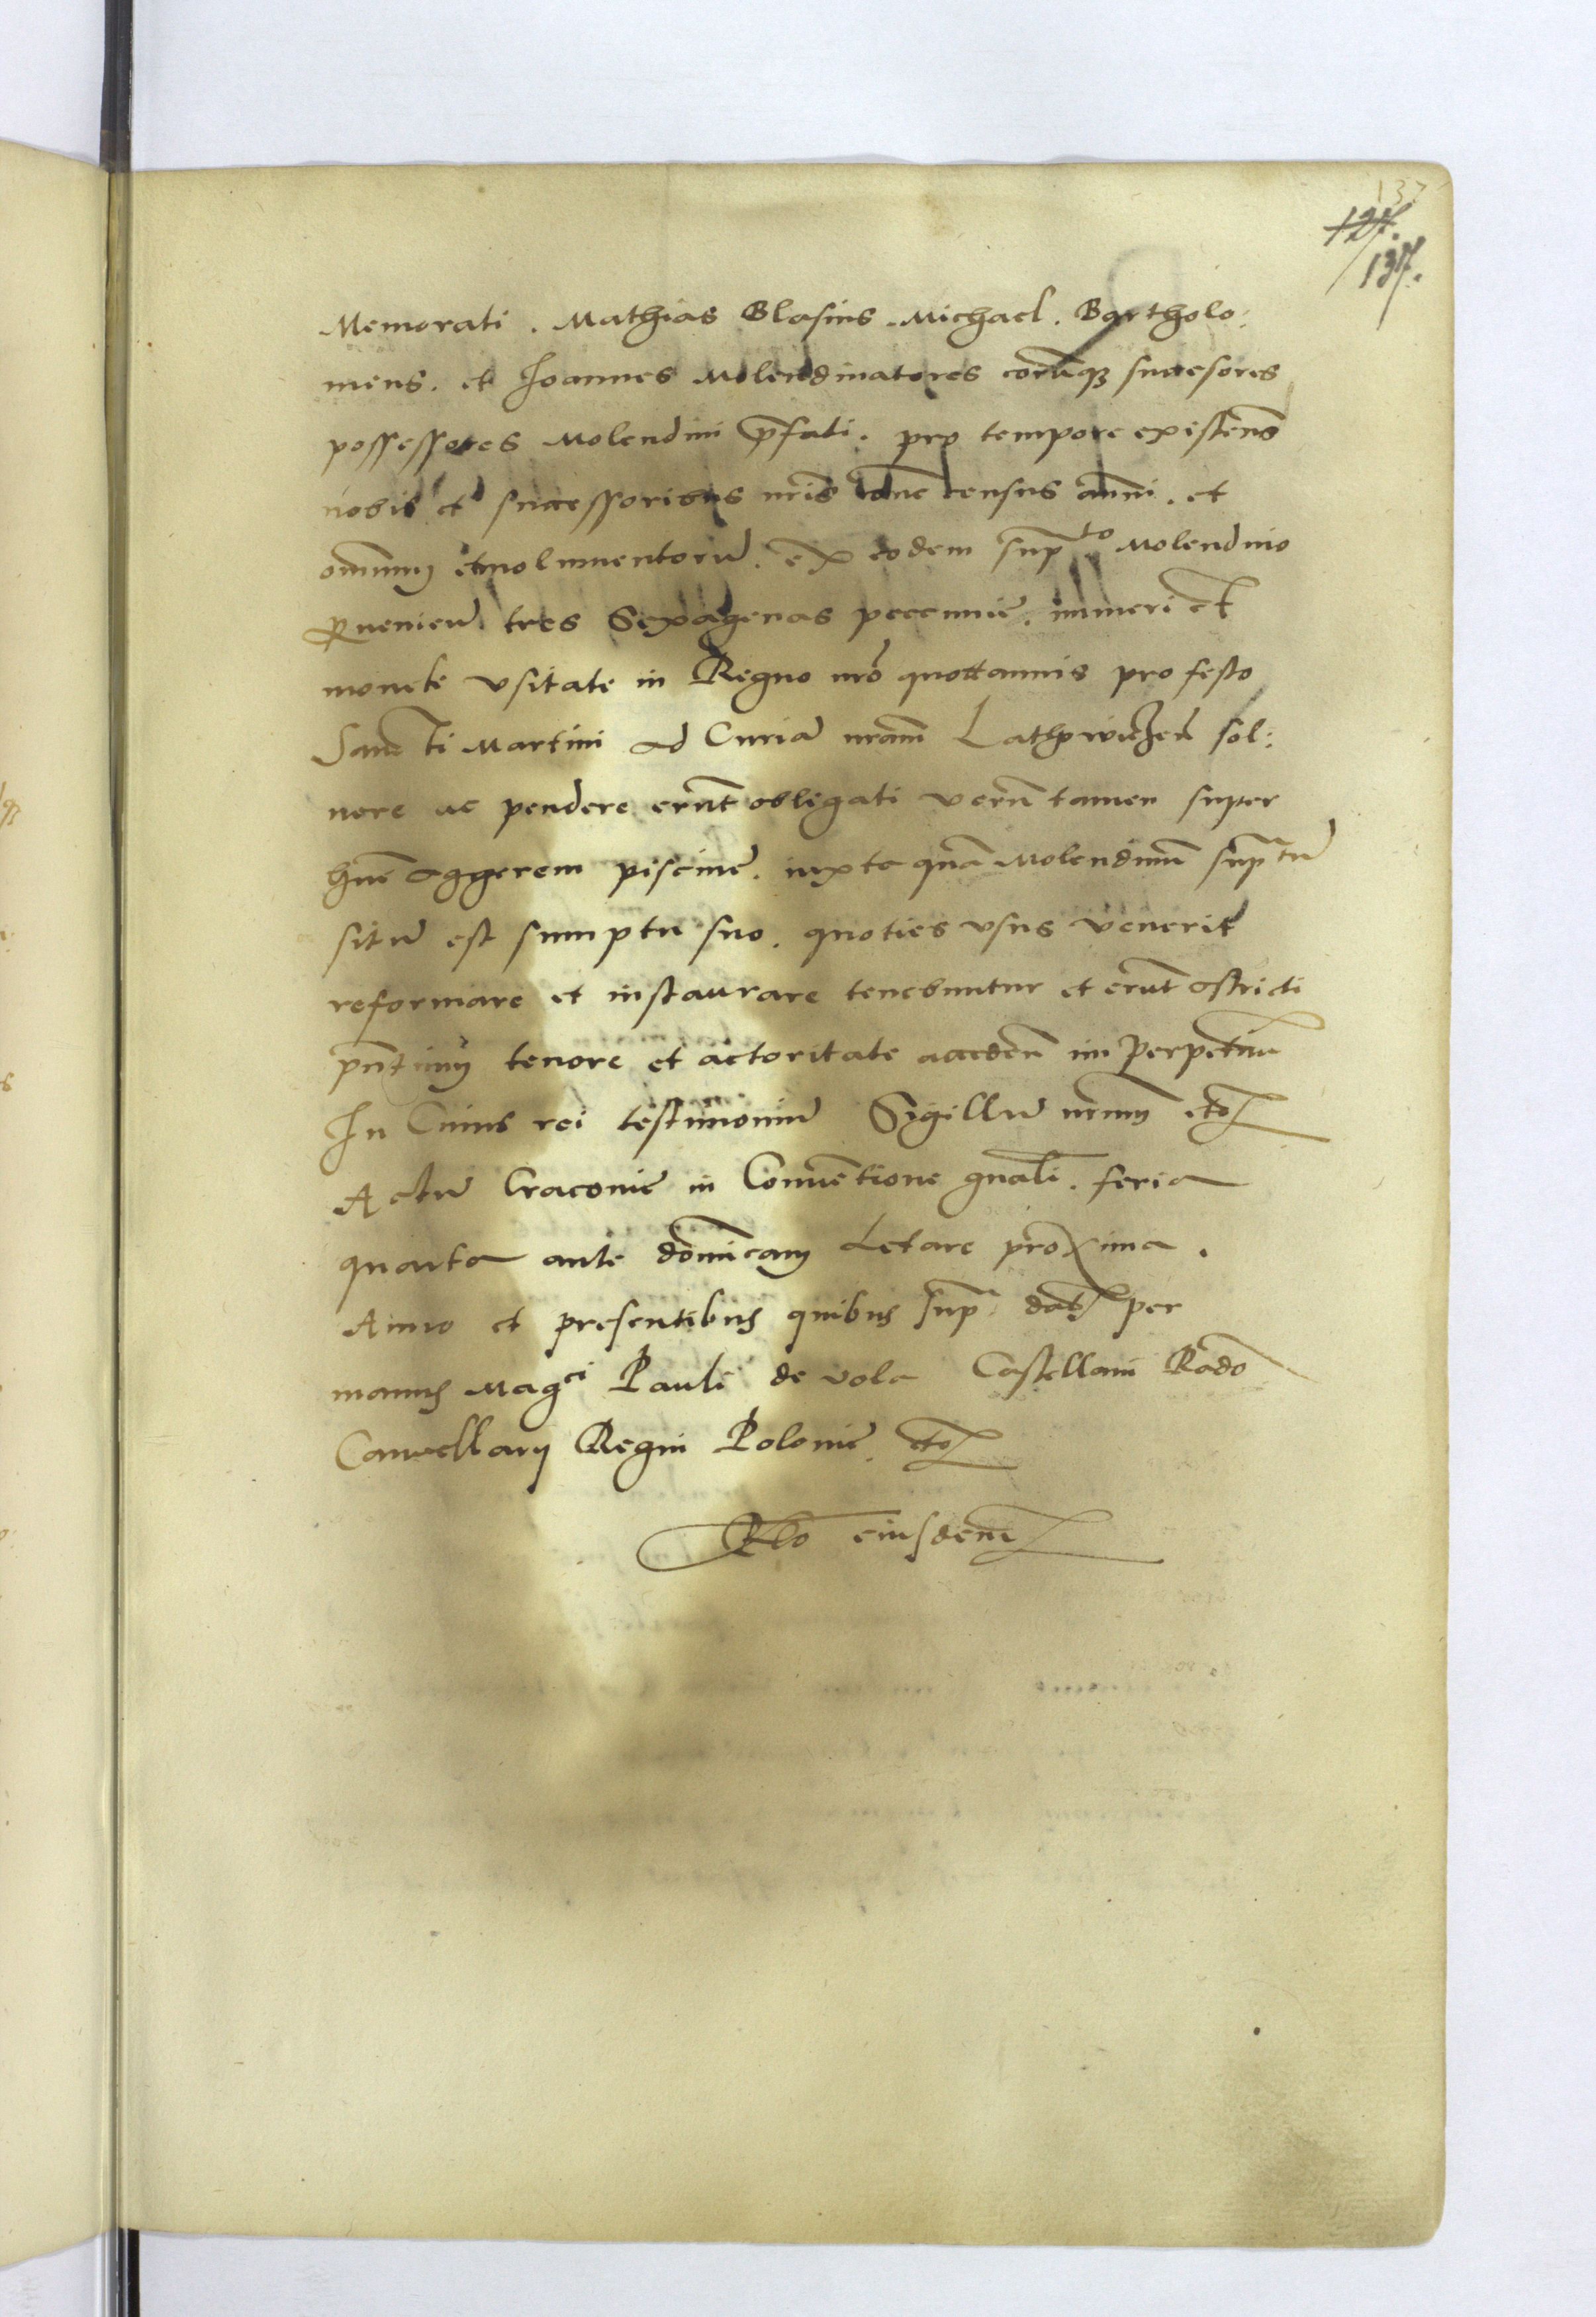 137
127.
137.
Memorati. Mathias Blasius. Michael. Bartholo:
meus. et Joannes Molendinatores eorūq3 succesores
possessores Molendini p̄fati. pro tempore existeñ
nobis et successoribus nr̄is census anni. et
omniuȝ etmolumentorū. ex eodem supto Molendino
ꝓueniēn tres Sexagenas peccunie. numeri et
monete vsitate in Regno nr̄o quottannis pro festo
Sancti Martini ad Curiā nr̄am sol:
uere ac pendere erūt obligati verū tamen super
aggerem piscine. iuxta quā Molendinū supratū
sitū est sumptu suo. quoties vsus venerit
reformare et instaurare tenebuntur et erūt astricti
pn̄tiuȝ tenore et actoritate in perpetuū
In Cuius rei testimoniū Sigillū nr̄uȝ etc̄
Actū Cracouie in Conuētione gn̄ali. feria
quarta ante dōmicaȝ Letare proxima.
Anno et presentibus quibus supra datȝ per
manus Magci Pauli de vola Castellani Radō
Cancellarij Regni Polonie. etc̄
Rl̄o eiusdem